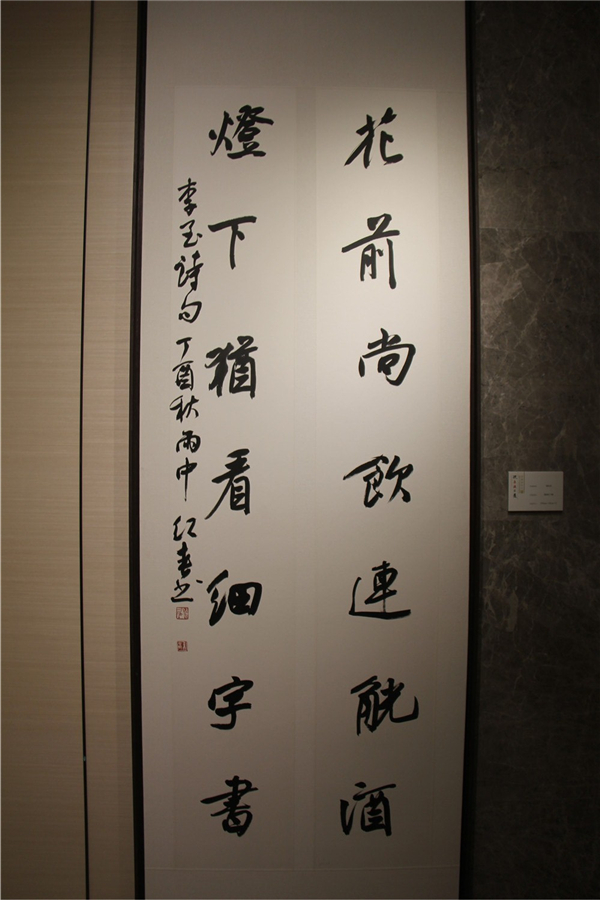 花前尚飲連觥酒
燈下猶看細字書
李至詩句丁酉秋雨中紅春书